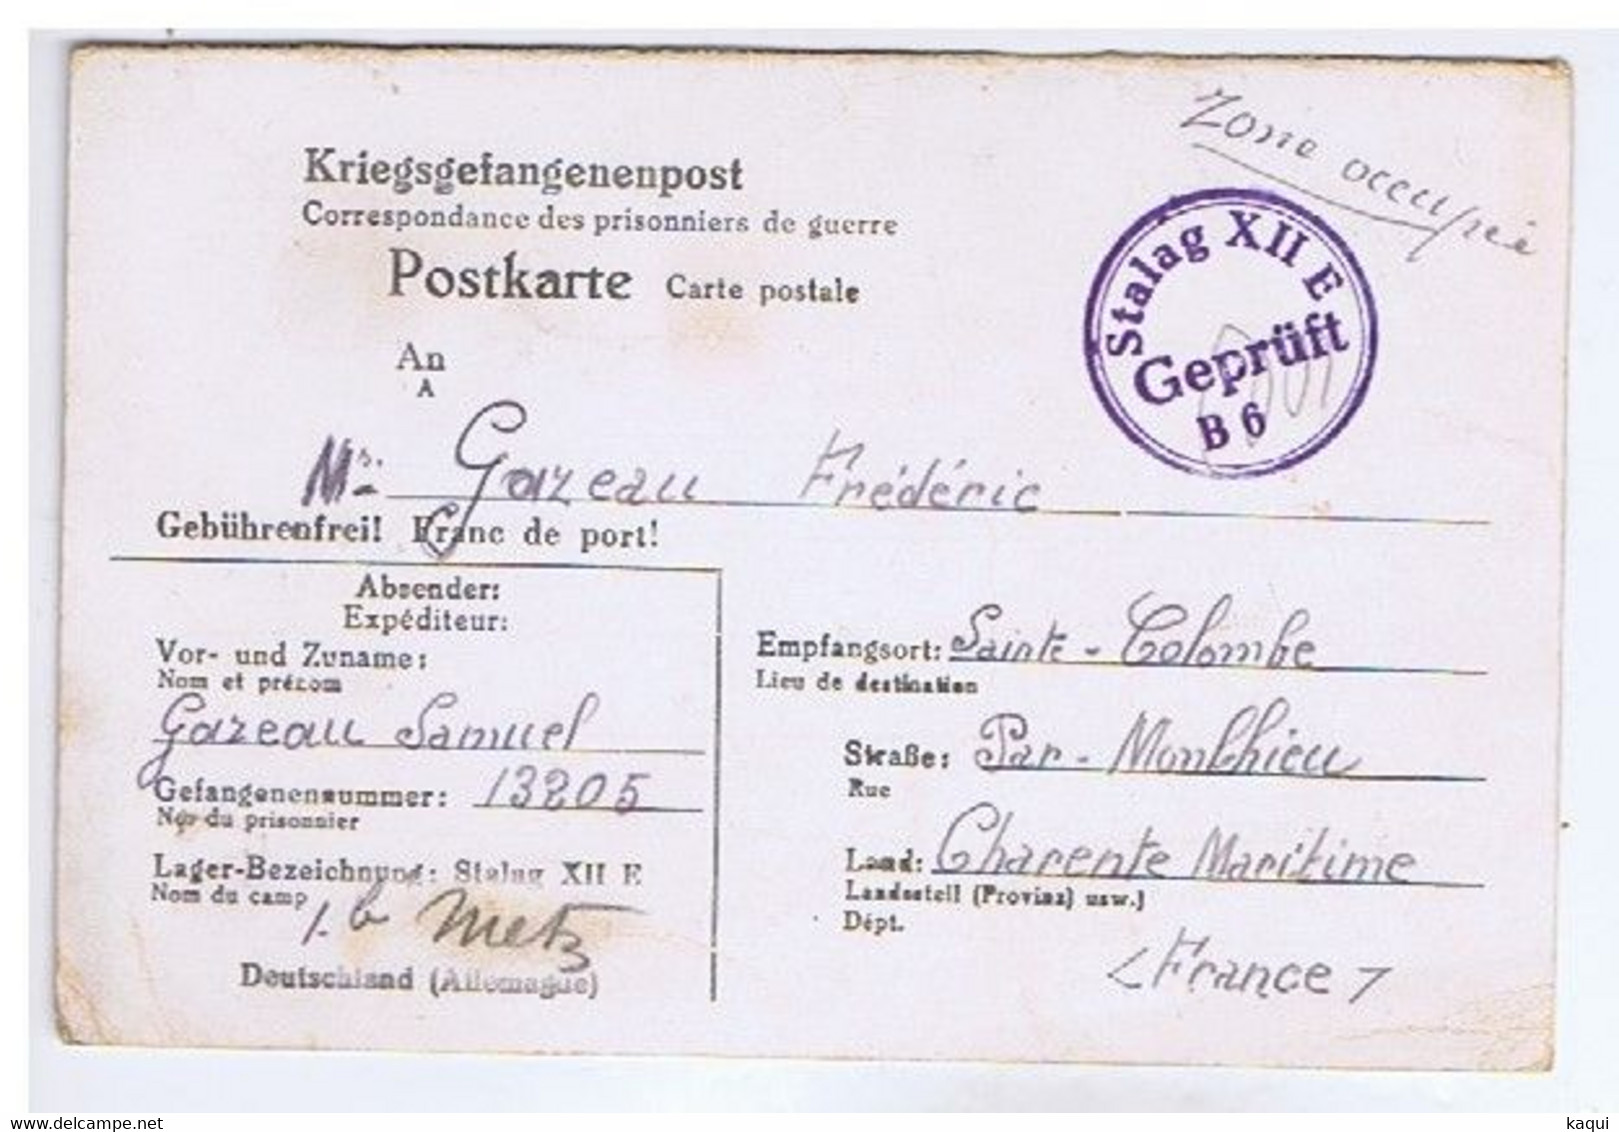 Zone occupée
Kriegsgefangenenpost
Correspondance des prisonniers de guerre
Postkarte Carte postale
Stalag XII E
Geprüft
B 6
An
A
Mr. Gazeau Frédéric
Gebührenfrei! Franc de port!
Absender:
Expéditeur:
Vor- und Zuname:
Nom et prénom
Gazeau Samuel
Gefangenennummer: 13205
No. du prisonnier
Lager-Bezeichnung: Stalag XII E
Nom du camp
Metz
Deutschland (Allemagne)
Empfangsort: Sainte-Colombe
Lieu de destination
Straße: Par-Montlhieu
Rue
Land: Charente Maritime
Landesteil (Provinz) usw.)
Dépt.
<France>
www.delcampe.net
kaqui